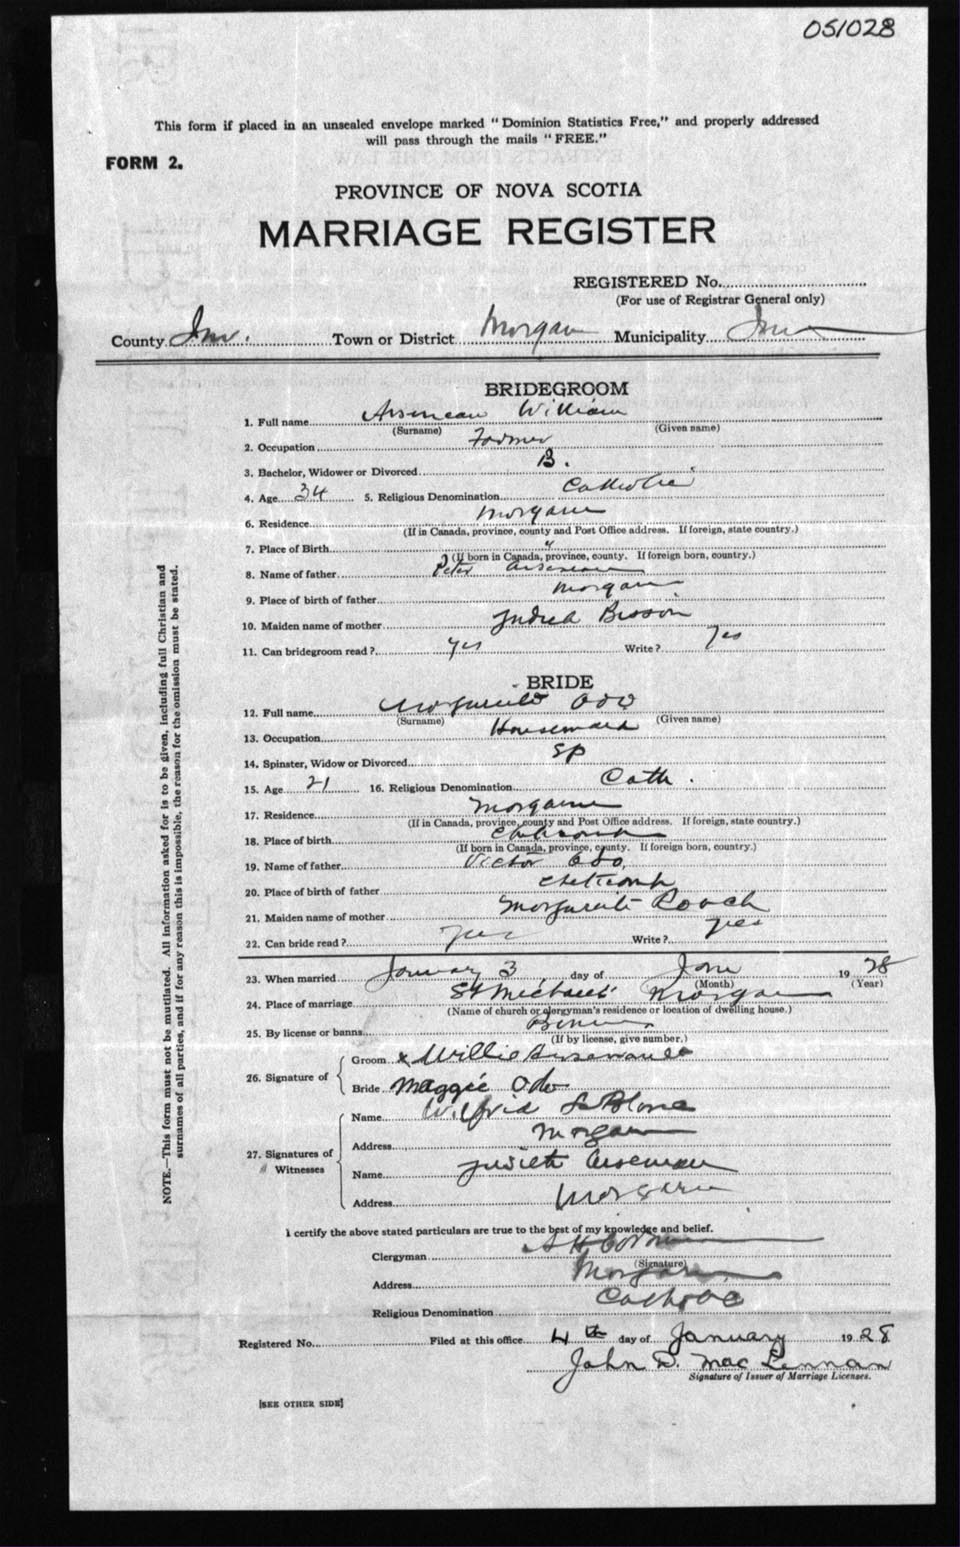 051028
This form if placed in an unsealed envelope marked "Dominion Statistics Free," and properly addressed
will pass through the mails "FREE."
FORM 2.
PROVINCE OF NOVA SCOTIA
MARRIAGE REGISTER
REGISTERED No.
(For use of Registrar General only)
County Inv. Town or District Morgan Municipality Inv
BRIDEGROOM
1. Full name Arseneau William
(Surname) (Given name)
2. Occupation Farmer
3. Bachelor, Widower or Divorced B.
4. Age 34 5. Religious Denomination Catholic
6. Residence Morgan
(If in Canada, province, county and Post Office address. If foreign, state country.)
7. Place of Birth "
(If born in Canada, province, county. If foreign born, country.)
8. Name of father Peter Arseneau
9. Place of birth of father Morgan
10. Maiden name of mother
11. Can bridegroom read? Yes Write? Yes
BRIDE
12. Full name Marguerite Odo
(Surname) (Given name)
13. Occupation Housemaid
14. Spinster, Widow or Divorced Sp
15. Age 21 16. Religious Denomination Cath.
17. Residence Morgan
(If in Canada, province, county and Post Office address. If foreign, state country.)
18. Place of birth
(If born in Canada, province, county. If foreign born, country.)
19. Name of father Victor Odo,
20. Place of birth of father
21. Maiden name of mother Marguerite Roach
22. Can bride read? Yes Write? Yes
23. When married January 3 day of Jany 1928
(Month) (Year)
24. Place of marriage St Michaels Morgan
(Name of church or clergyman's residence or location of dwelling house.)
25. By license or banns
(If by license, give number.)
26. Signature of
Groom x Willie Arsenault
Bride Maggie Odo
27. Signatures of Witnesses
Name Wilfrid LeBlanc
Address Morgan
Name Judith Arseneau
Address Morgan
I certify the above stated particulars are true to the best of my knowledge and belief.
Clergyman
(Signature)
Address Morgan
Religious Denomination Catholic
Registered No. Filed at this office 4th day of January 1928
John D. MacLennan
Signature of Issuer of Marriage Licenses.
[SEE OTHER SIDE]
NOTE.—This form must not be mutilated. All information asked for is to be given, including full Christian and
surnames of all parties, and if for any reason this is impossible, the reason for the omission must be stated.